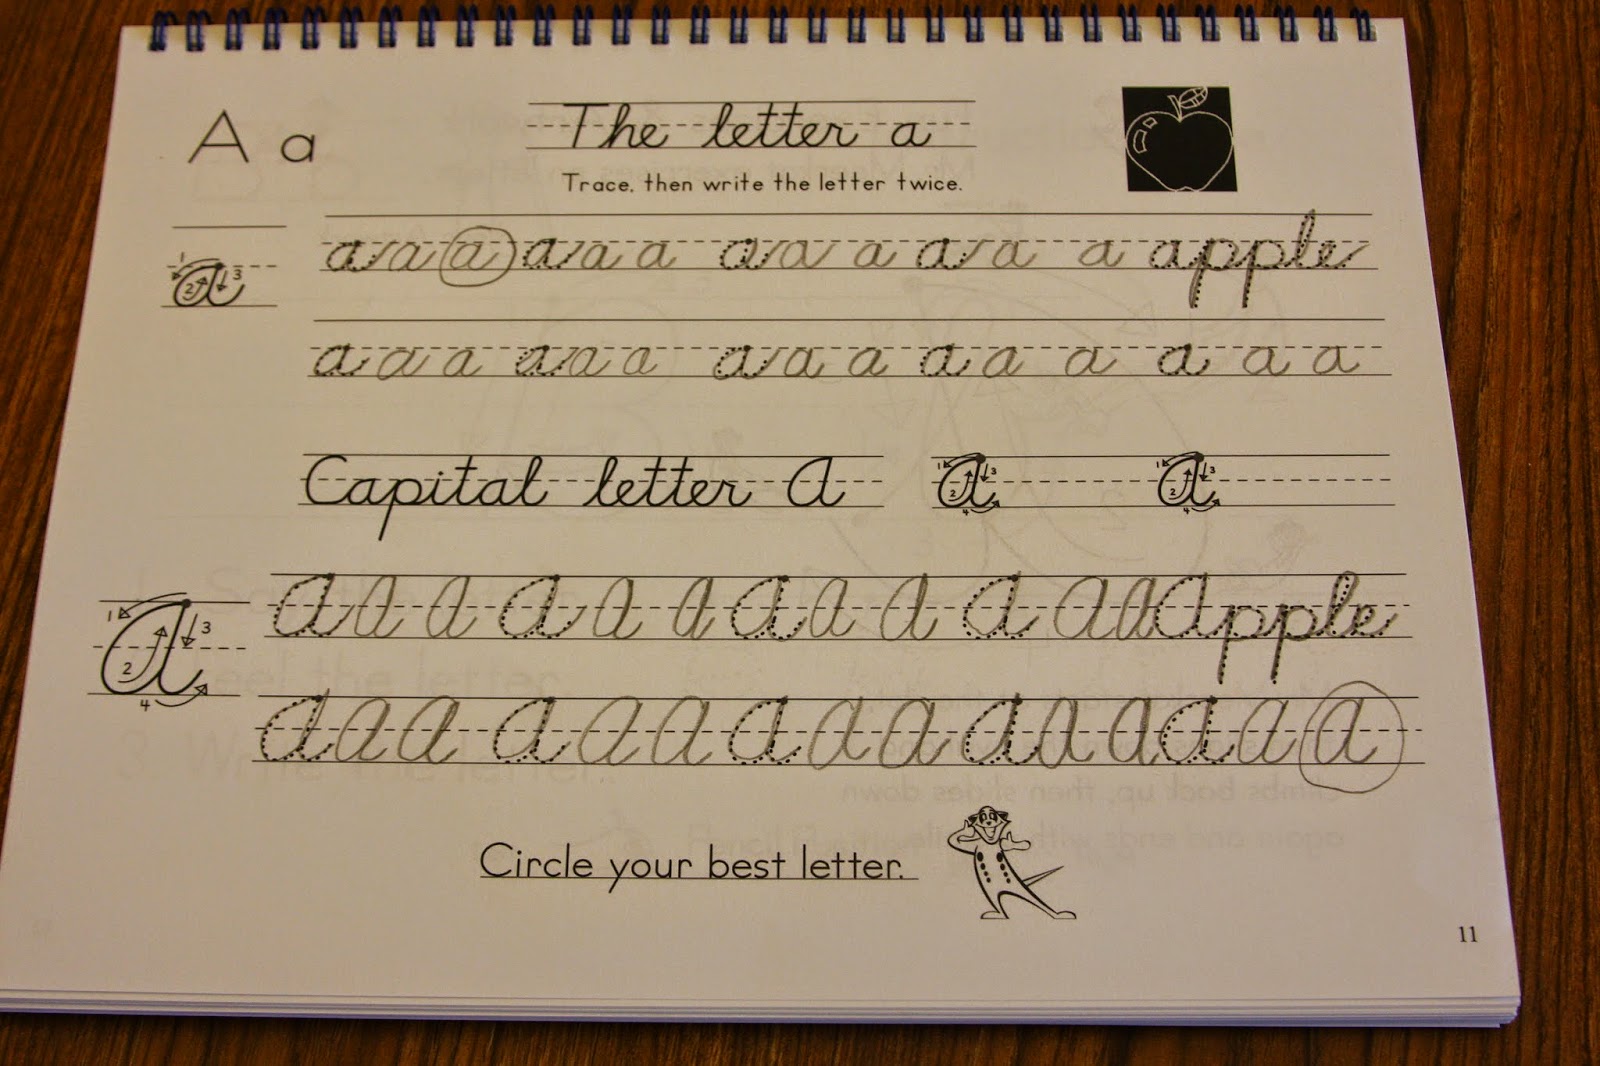 A a
The letter a
Trace, then write the letter twice.
1 2 3 a
a a a a a a a a a a a a apple
a a a a a a a a a a a a a a a
Capital letter A
1 2 3 4 A 1 2 3 4 A
1 2 3 4 A
A A A A A A A A A A A A Apple
A A A A A A A A A A A A A A A
Circle your best letter.
11